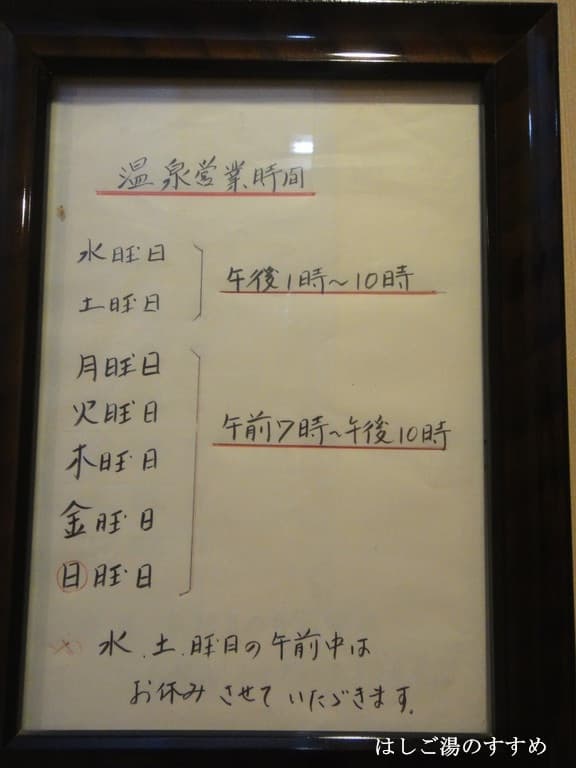 温泉営業時間
水旺日
土旺日
午後1時～10時
月旺日
火旺日
木旺日
金旺日
日旺日
午前7時～午後10時
※ 水.土.旺日の午前中は
お休みさせていただきます.
はしご湯のすすめ